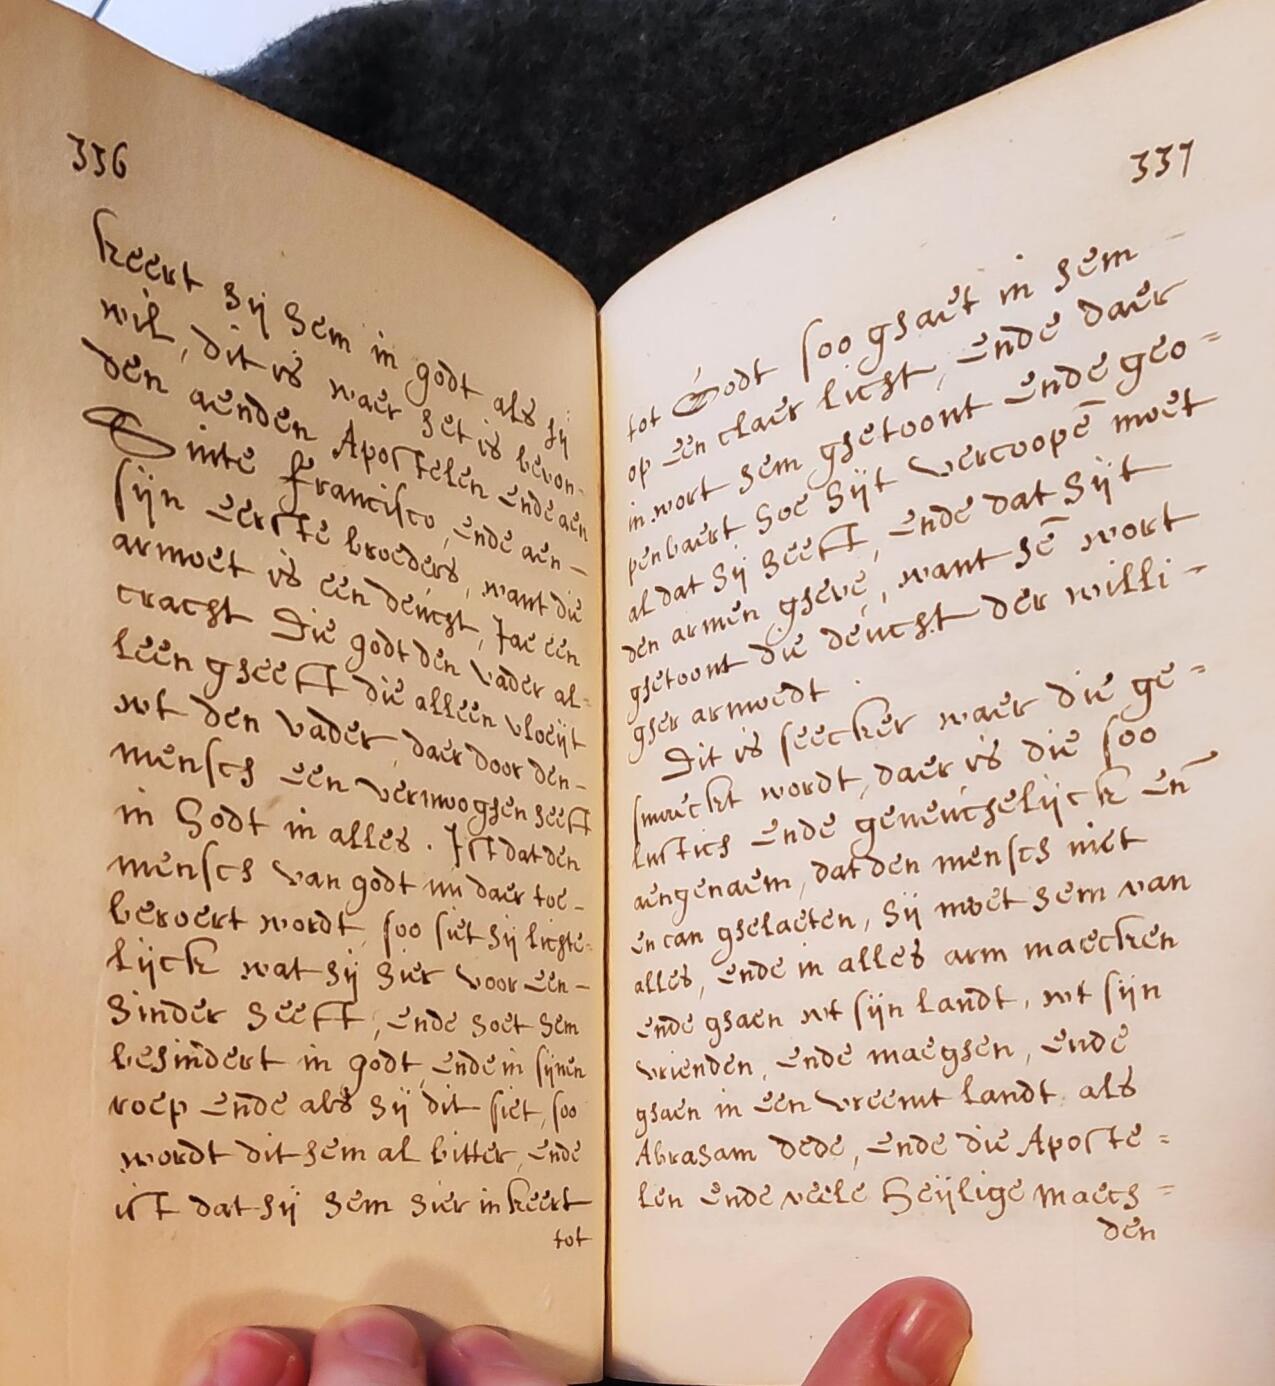 336
keert hij hem in godt als hij
wil, dit is waer het is bevon-
den aenden Apostelen ende aen
Sinte Francisco, ende aen-
sijn eerste broeders, want die
armoet is een deucht, Jae een
cracht Die godt den vader al-
leen gheeft die alleen vloeijt
wt den vader daer door den-
mensch een vermoghen heeft
in Godt in alles. Ist dat den
mensch van godt nu daer toe-
beroert wordt, soo siet hij lichte-
lijck wat hij hier voor een-
hinder heeft, ende hoet hem
behindert in godt, ende in sijnen
roep ende als hij dit siet, soo
wordt dit hem al bitter, ende
ist dat hij hem hier in keert
tot
337
tot Godt soo ghaet in hem-
op een claer licht, ende daer
in wort hem ghetoont ende geo=
penbaert hoe hijt vercoopē moet
al dat hij heeft, ende dat hijt
den armen ghevē, want hē wort
ghetoont die deucht der willi-
gher armoedt.
Dit is seecker waer die ge=
smaeckt wordt, daer is die soo
lustich ende geneuchelijck eñ
aengenaem, dat den mensch niet
en can ghelaeten, hij moet hem van
alles, ende in alles arm maecken
ende ghaen wt sijn landt, wt sijn
vrienden, ende maeghen, ende
ghaen in een vreemt landt als
Abraham dede, ende die Aposte=
len ende veele heijlige maech=
den